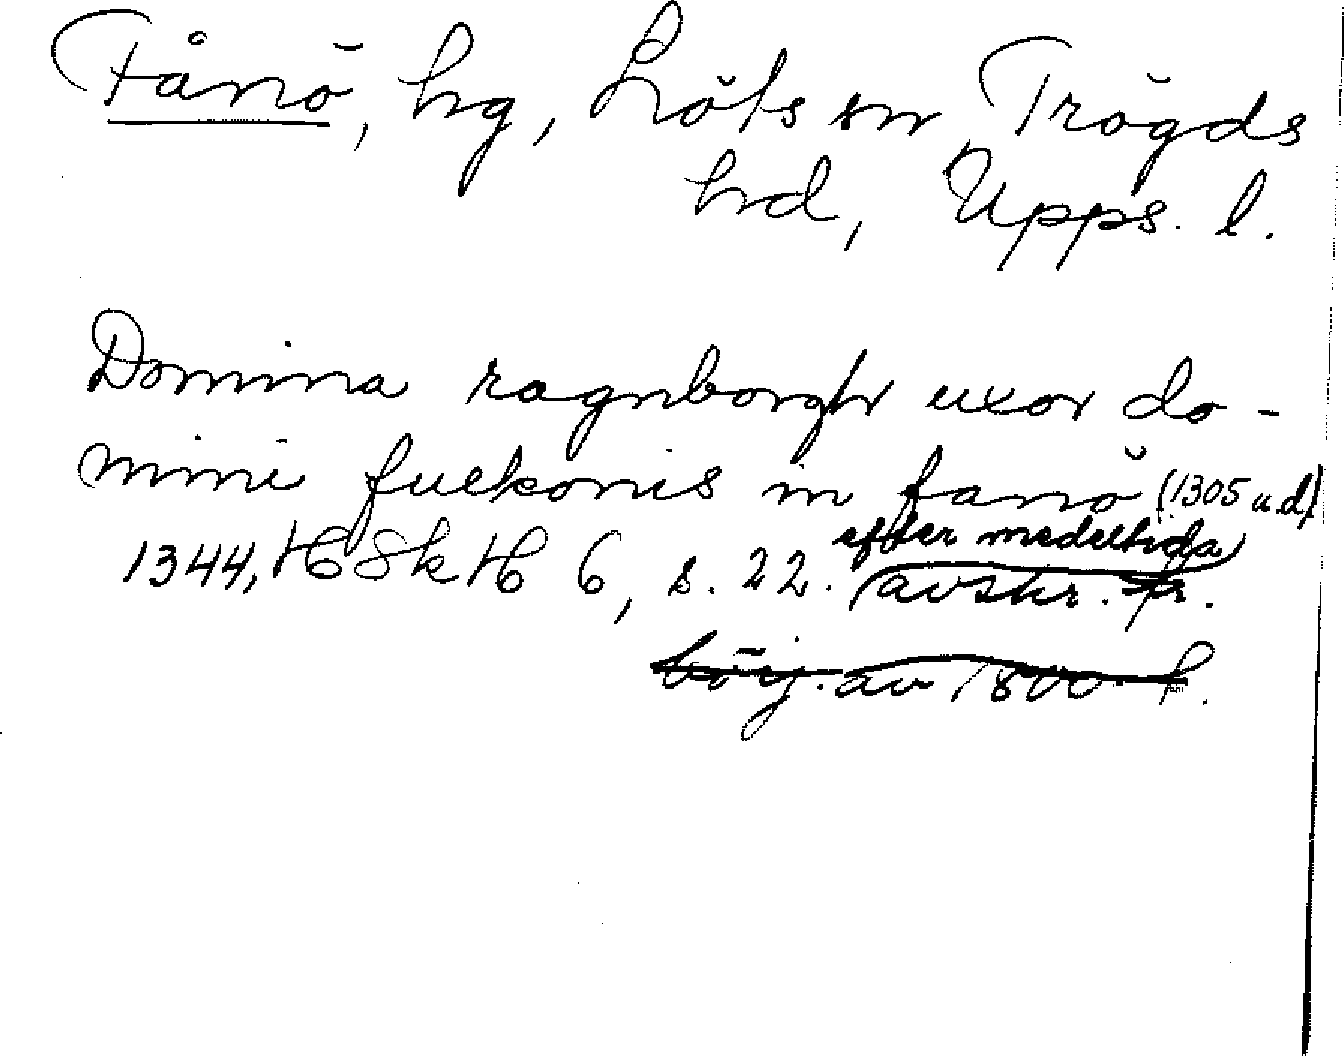 Fånö, hg, Löts sn Trögds
hd, Upps. l.
Domina ragnborgh uxor do-
mini fulkonis in fanö (1305 u.d)
1344, HSkH 6, s. 22. (efter medeltida
avskr. fr.
börj. av 1800-t.